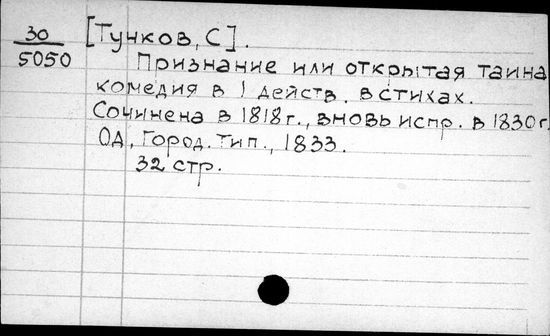 30
5050
[Тунков, С].
Признание или открытая таина
комедия в 1 действ. в стихах.
Сочинена в 1818 г., вновь испр. в 1830 г.
Од, Город. тип., 1833.
32 стр.